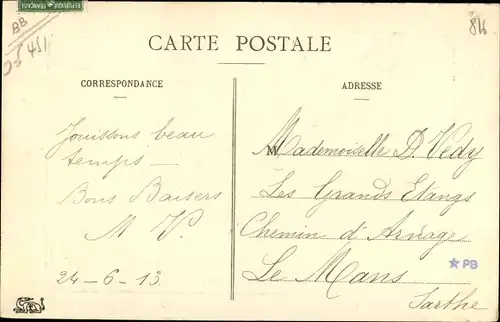 RÉPUBLIQUE FRANÇAISE
BB
816
CARTE POSTALE
CORRESPONDANCE
Jouissons beau
temps —
Bons Baisers
M V.
24 - 6 - 13
ADRESSE
Mademoiselle D. Védy
Les Grands Etangs
Chemin d'Arnage
Le Mans
Sarthe
★ PB